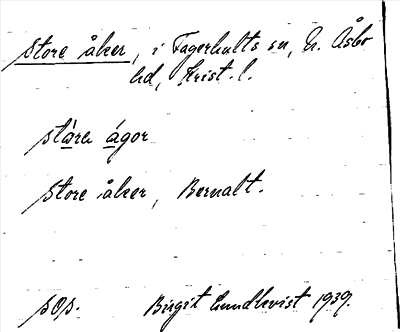 Store åker, i Fagerhults sn, N. Åsbo
hd, Krist. l.
stàra ágor
Store åker, Bernalt.
sop. Birgit Lundkvist 1939.